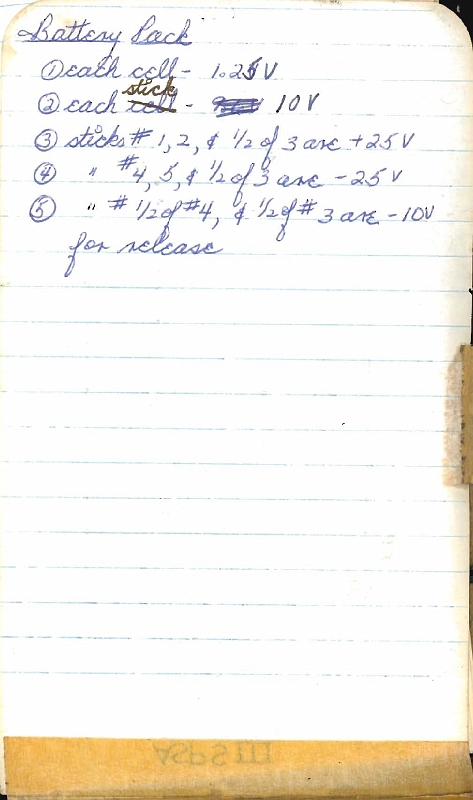 Battery Pack
① each cell - 1.25V
② each stick - 10V
③ sticks # 1, 2, & 1/2 of 3 are +25V
④ " #4, 5, & 1/2 of 3 are -25V
⑤ " # 1/2 of #4, & 1/2 of #3 are -10V
for release